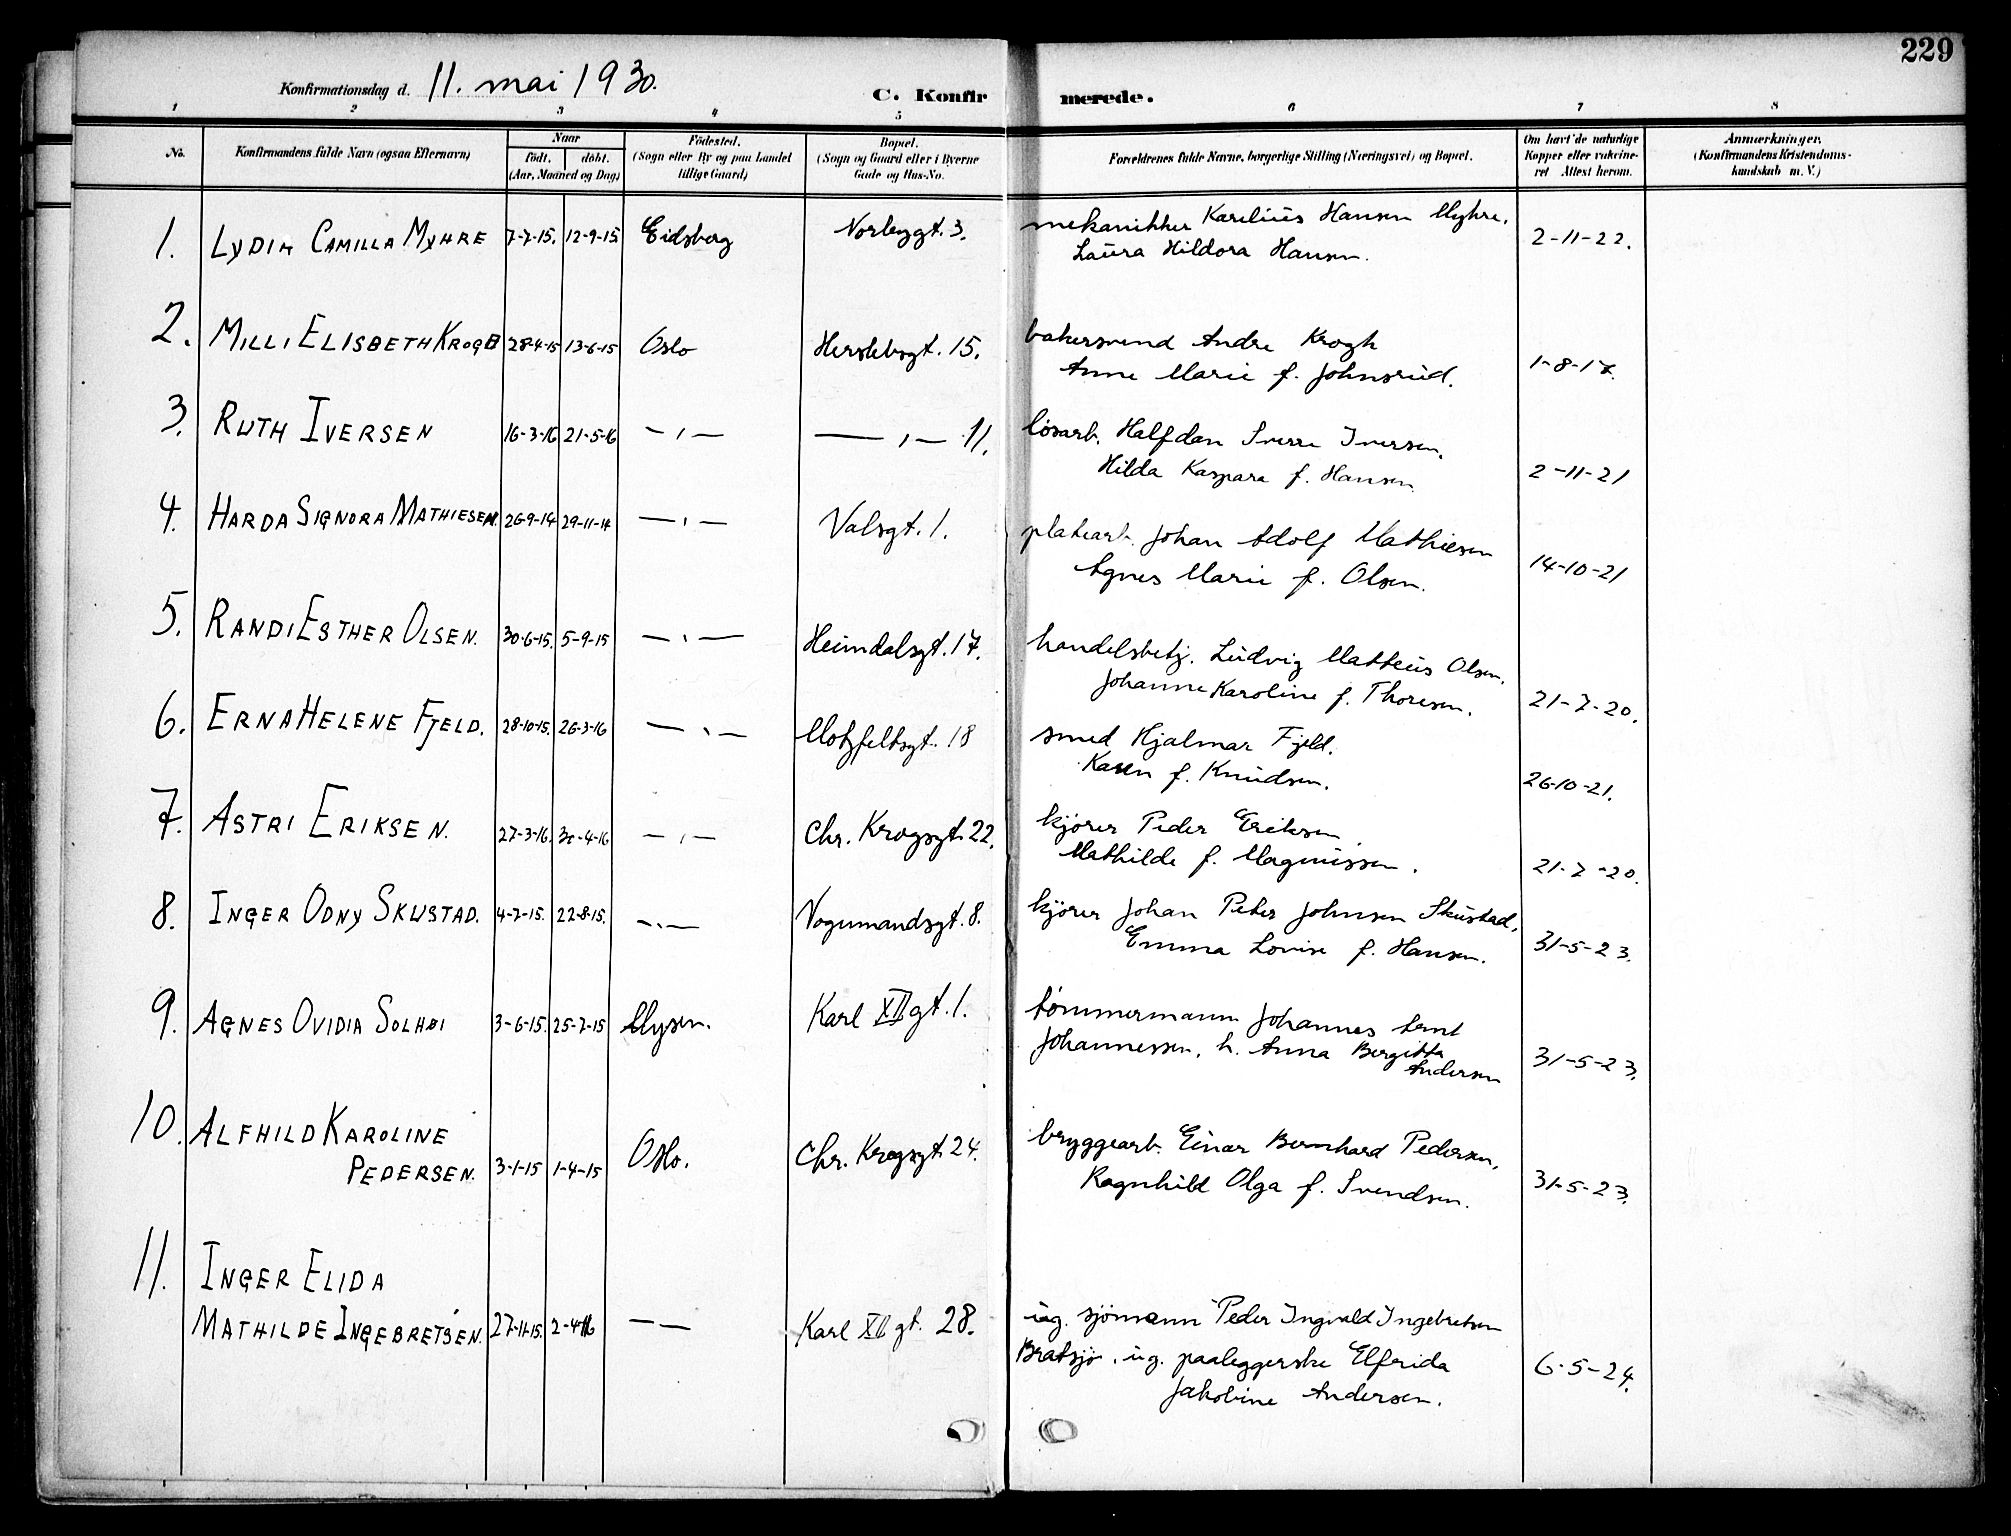 229
Konfirmationsdag d. 11. mai 1930.
C. Konfirmerede.
1 2 3 4 5 6 7 8
No. Konfirmandens fulde Navn (ogsaa Efternavn) Naar født. døbt. (Aar, Maaned og Dag) Fødested. (Sogn eller By og paa Landet tillige Gaard) Bopæl. (Sogn og Gaard eller i Byerne Gade og Hus-No. Forældrenes fulde Navne, borgerlige Stilling (Næringsvei) og Bopæl. Om havt de naturlige Kopper eller vakcineret Attest herom. Anmærkninger. (Konfirmandens Kristendomskundskab m. V.)
1. LYDIA CAMILLA MYHRE 7-7-15. 12-9-15 Eidsberg Norbygt. 3. mekanikker Karelius Hansen Myhre. 2-11-22.
Laura Hildora Hansen.
2. MILLI ELISBETH KROGH 28-4-15 13-6-15 Oslo Herslebsgt. 15. bakersvend Andre Krogh 1-8-17.
Anne Marie f. Johnsrud.
3. RUTH IVERSEN 16-3-16 21-5-16 — , — — , — 11. løsarb. Halfdan Sverre Iversen. 2-11-21
Hilda Kaspara f. Hansen
4. HARDA SIGNORA MATHIESEN 26-9-14 29-11-14 — , — Valsgt. 1. platearb. Johan Adolf Mathiesen 14-10-21
Agnes Marie f. Olsen.
5. RANDI ESTHER OLSEN. 30-6-15. 5-9-15 — , — Heimdalsgt. 17. handelsbetj. Ludvig Matteus Olsen. 21-7-20.
Johanne Karoline f. Thoresen.
6. ERNA HELENE FJELD. 28-10-15. 26-3-16 — , — Motzfeltsgt. 18 smed Hjalmar Fjeld. 26-10-21.
Karen f. Knudsen.
7. ASTRI ERIKSEN. 27-3-16. 30-4-16 — , — Chr. Krogsgt. 22. kjører Peder Eriksen 21-7-20.
Mathilde f. Magnussen.
8. INGER ODNY SKUSTAD. 4-7-15. 22-8-15. — . — Vognmandsgt. 8. kjører Johan Peter Johnsen Skustad, 31-5-23.
Emma Lovise f. Hansen.
9. AGNES OVIDIA SOLHØI 3-6-15. 25-7-15 Mysen. Karl XII gt. 1. tømmermann Johannes Arnt
Johannessen, h. Anna Bergitta Andersen 31-5-23.
10. ALFHILD KAROLINE
PEDERSEN. 3-1-15 1-4-15 Oslo. Chr. Krogsgt. 24. bryggearb. Einar Bernhard Pedersen, 31-5-23.
Ragnhild Olga f. Svendsen.
11. INGER ELIDA
MATHILDE INGEBRETSEN. 27-11-15. 2-4-16 — — Karl XII gt. 28. ug. sjømann Peder Ingvald Ingebretsen
Bratsjø, ug. paaleggerske Elfrida 6-5-24.
Jakobine Andersen.